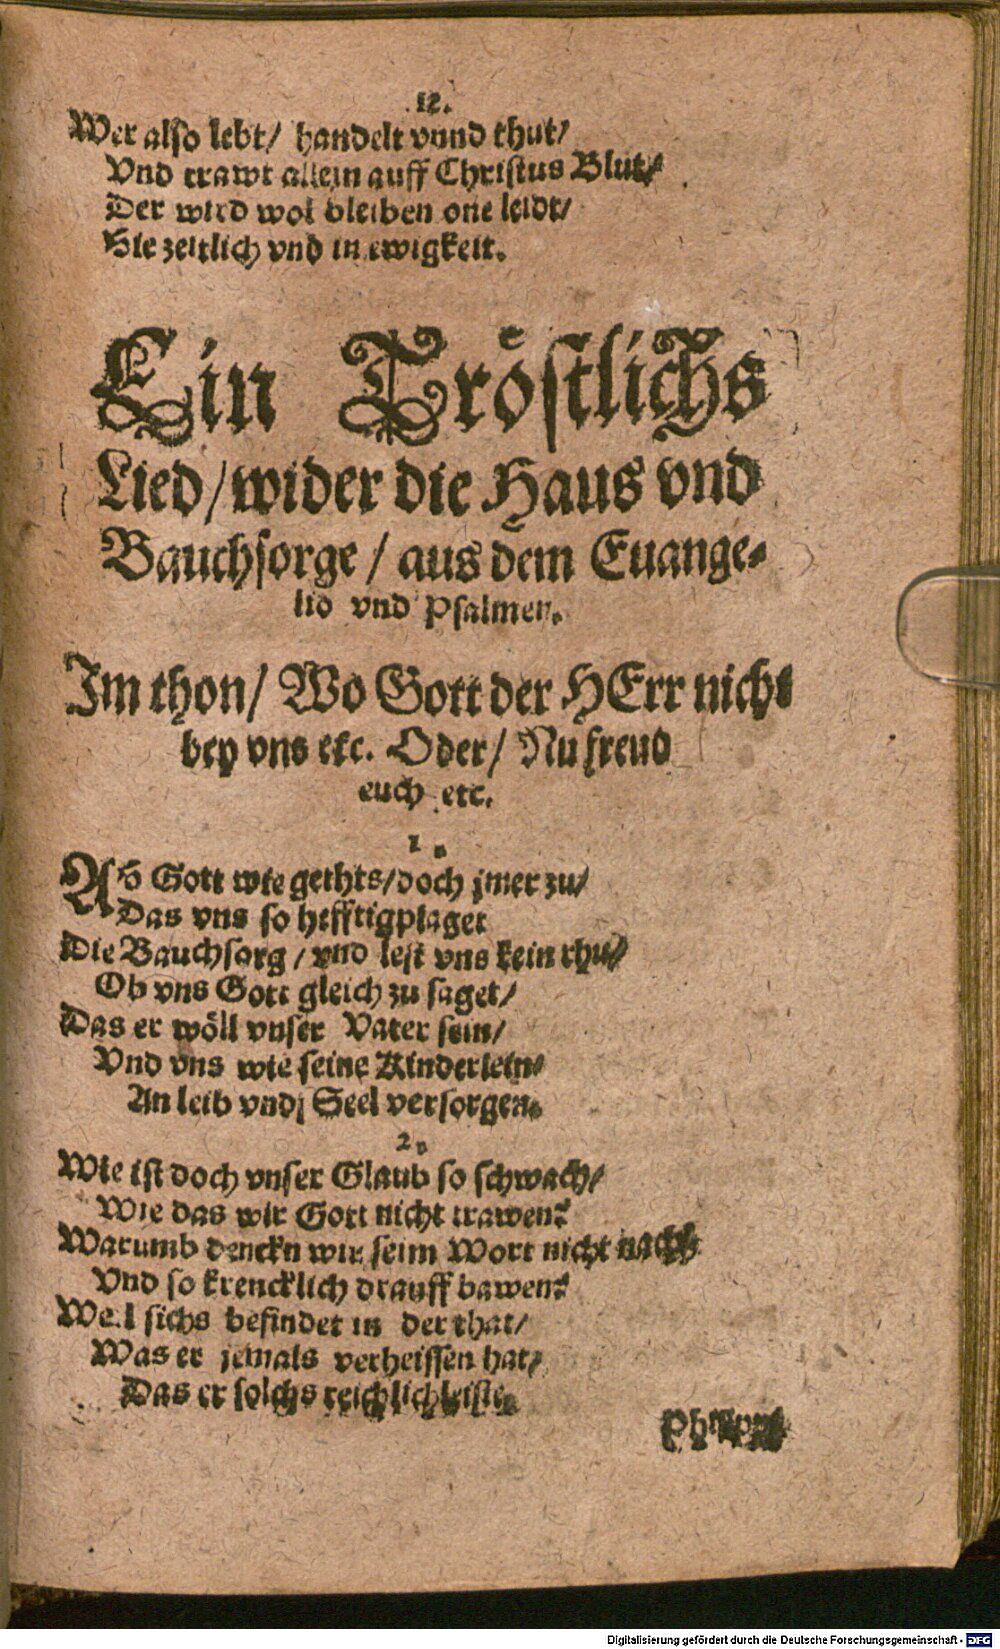 12.
Wer also lebt/ handelt vnnd thut/
Vnd trawt allein auff Christus Blut/
Der wird wol bleiben one leidt/
Hie zeitlich vnd in ewigkeit.
Ein Tröstlichs
Lied/ wider die Haus vnd
Bauchsorge / aus dem Euange-
lio vnd Psalmen.
Im thon/ Wo Gott der HErr nicht
bey vns etc. Oder/ Nu frewd
euch etc.
1.
AH Gott wie gethts/ doch jmer zu/
Das vns so hefftig plaget
Die Bauchsorg / vnd lest vns kein rhu/
Ob vns Gott gleich zu saget/
Das er wöll vnser Vater sein/
Vnd vns wie seine Kinderlein/
An leib vnd Seel versorgen.
2.
Wie ist doch vnser Glaub so schwach/
Wie das wir Gott nicht trawen?
Warumb denckn wir seim Wort nicht nach/
Vnd so krencklich drauff bawen?
Weil sichs befindet in der that/
Was er jemals verheissen hat/
Das er solchs reichlich leiste.
Digitalisierung gefördert durch die Deutsche Forschungsgemeinschaft - DFG